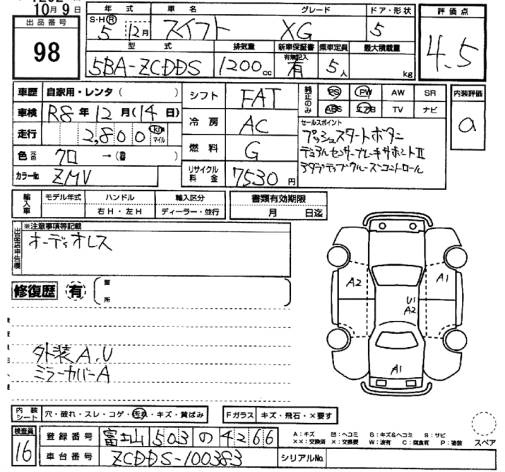 10月9日
出品番号
98
年式 車名 グレード ドア・形状 評価点
S・H・Ⓡ 5年12月 スイフト XG 5 4.5
型式 排気量 新車保証書 有無記入 乗車定員 最大積載量
5BA-ZCDDS 1200cc 有 5人 kg
車歴 自家用・レンタ( )
シフト FAT
純正のみ PS PW AW SR
ABS エアB TV ナビ
内装評価 a
車検 R8年12月(14日)
冷房 AC
セールスポイント
プッシュスタートボタン
デュアルセンサーブレーキサポートII
アダプティブクルーズコントロール
走行 2,800 km マイル
燃料 G
色 クロ→( )
カラーNo. ZMV
リサイクル料金 7530円
輸入車 モデル年式 ハンドル 輸入区分
年 右H・左H ディーラー・並行
書類有効期限
月 日迄
※注意事項等記載
出品店申告欄
オーディオレス
修復歴 有 箇所
外装A.U
ミラーカバーA
A2
U1
A2
A1
A1
内装シート 穴・破れ・スレ・コゲ・汚れ・キズ・黄ばみ
Fガラス キズ・飛石・×要す
スペア
検査員 16
登録番号 富士山503の4266
A：キズ 凹：ヘコミ B：キズ&ヘコミ S：サビ
××：交換済 ×：要交換 W：波有 C：腐食有 P：塗装
車台番号 ZCDDS-100383
シリアルNo.